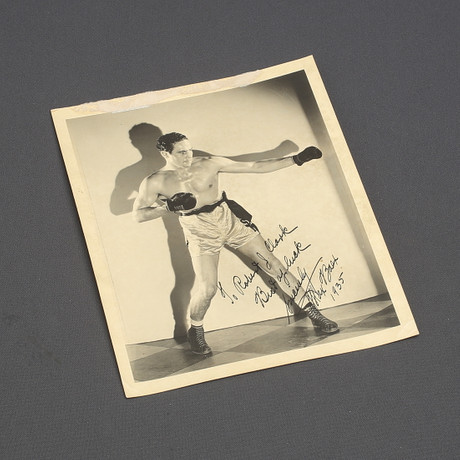 To Robert J. Clark
Best of luck
Sincerely
Max Baer
1935